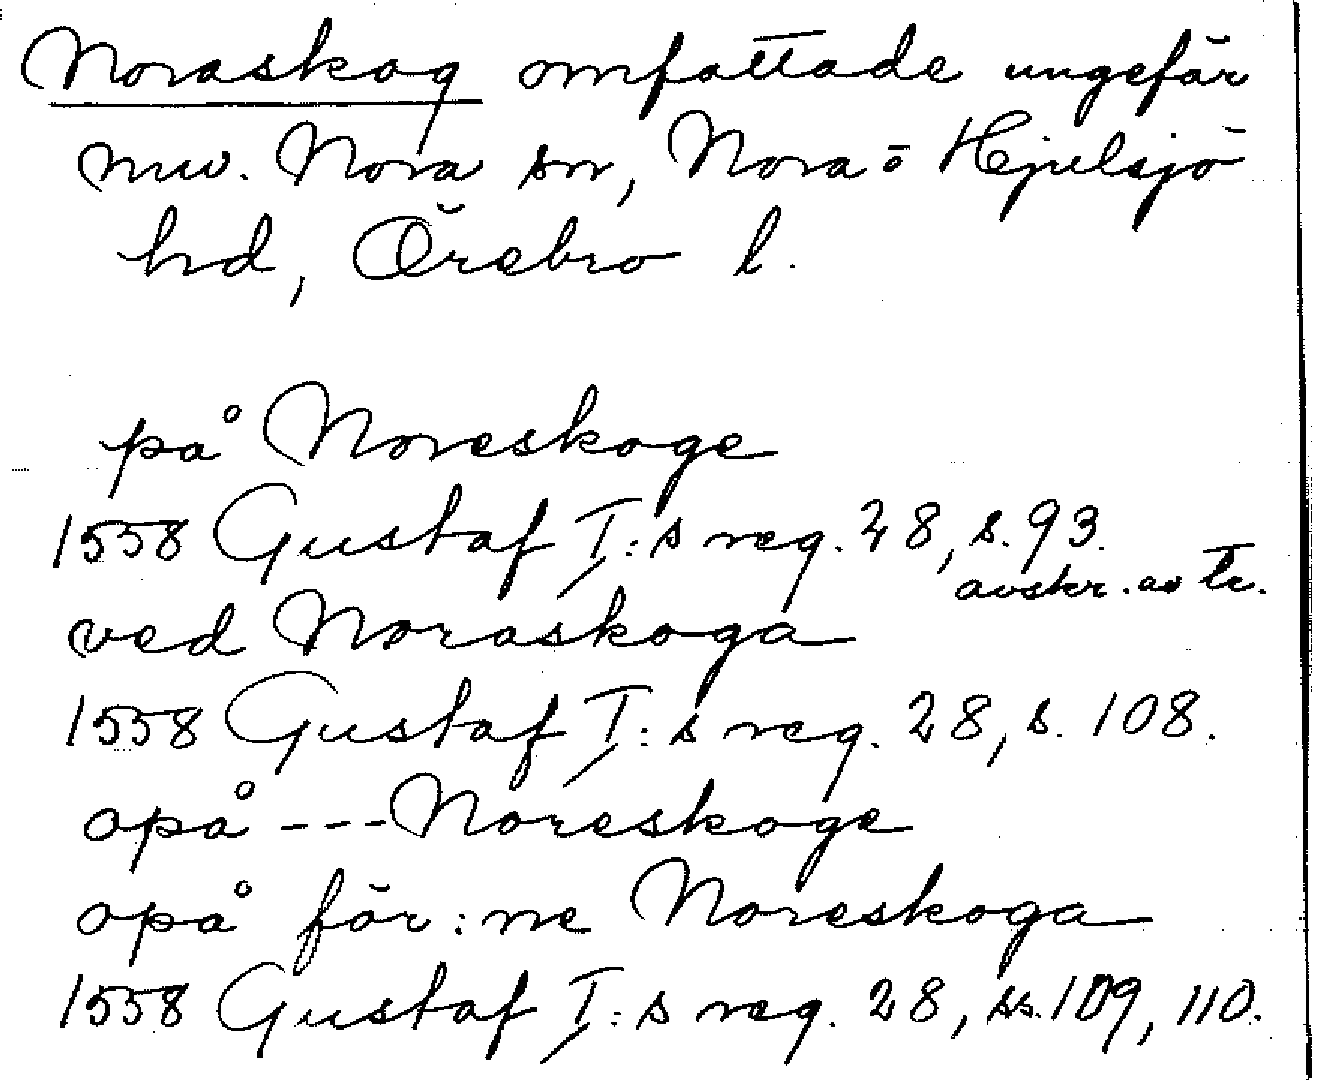 Noraskog omfattade ungefär
nuv. Nora sn, Nora o Hjulsjö
hd, Örebro l.
på Noreskoge
1558 Gustaf I:s reg. 28, s. 93.
avskr. av tr.
ved Noraskoga
1558 Gustaf I:s reg. 28, s. 108.
opå --- Noreskoge
opå för:ne Noreskoga
1558 Gustaf I:s reg. 28, ss. 109, 110.